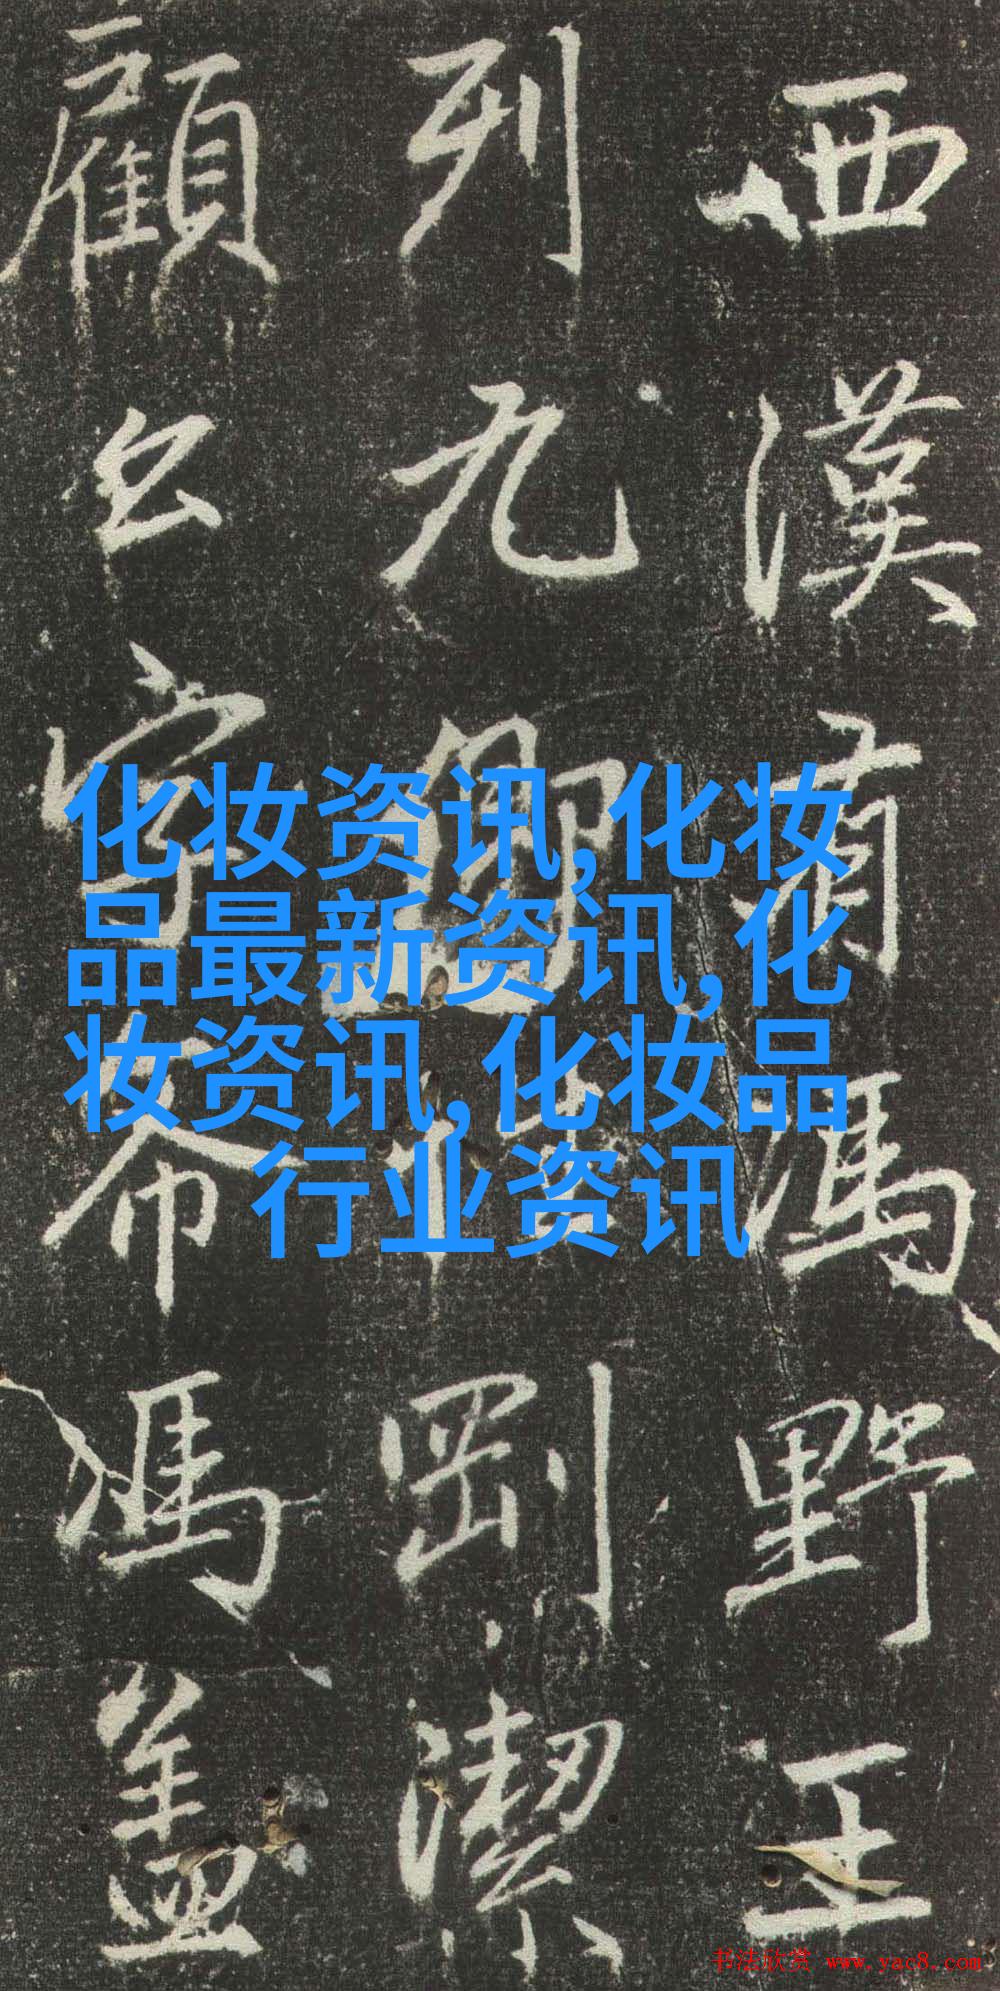 西漢有馮野王
列九卿剛潔
顧公字希馮盖
化妆资讯,化妆
品最新资讯,化
妆资讯,化妆品
行业资讯
书法欣赏 www.yac8.com